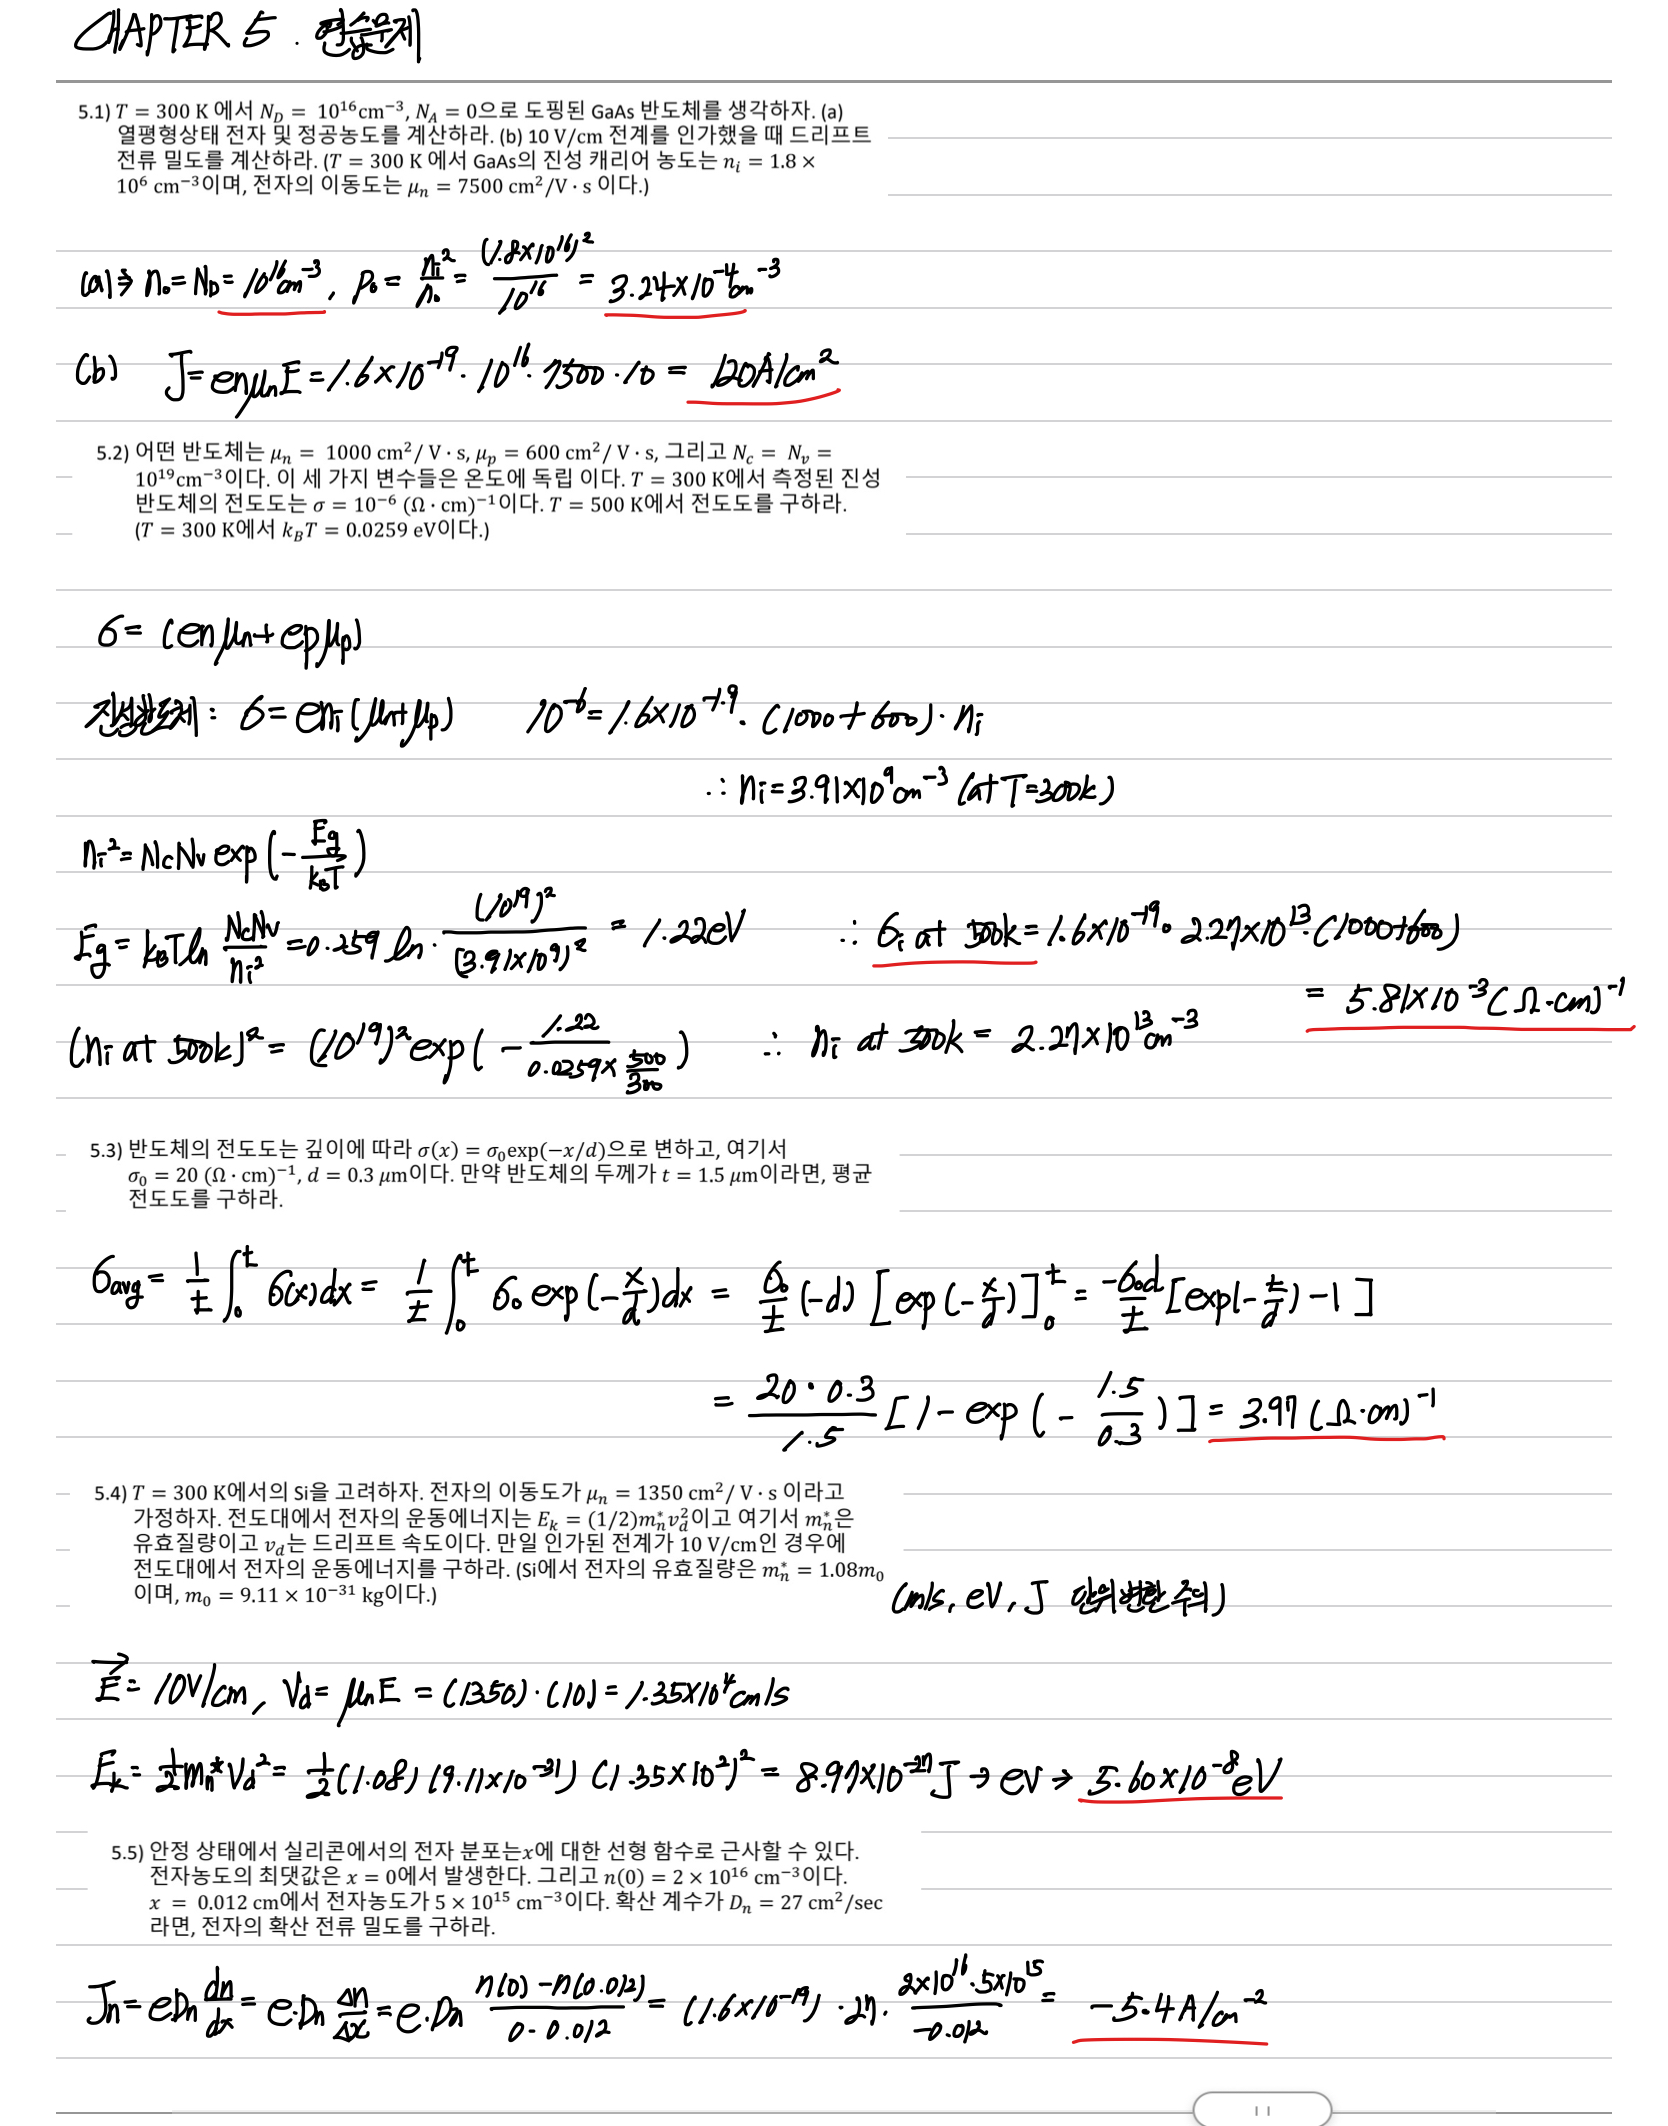 CHAPTER 5 . 연습문제
5.1) T = 300 K 에서 N_D = 10^16cm^−3, N_A = 0으로 도핑된 GaAs 반도체를 생각하자. (a)
열평형상태 전자 및 정공농도를 계산하라. (b) 10 V/cm 전계를 인가했을 때 드리프트
전류 밀도를 계산하라. (T = 300 K 에서 GaAs의 진성 캐리어 농도는 n_i = 1.8 ×
10^6 cm^−3이며, 전자의 이동도는 μ_n = 7500 cm^2/V · s 이다.)
(a) ⇒ n_o = N_D = 10^16cm^-3, p_o = n_i^2/n_o = (1.8×10^16)^2/10^16 = 3.24×10^-4cm^-3
(b) J = enμ_nE = 1.6×10^-19 · 10^16 · 7500 · 10 = 120A/cm^2
5.2) 어떤 반도체는 μ_n = 1000 cm^2/ V · s, μ_p = 600 cm^2/ V · s, 그리고 N_c = N_v =
10^19cm^−3이다. 이 세 가지 변수들은 온도에 독립 이다. T = 300 K에서 측정된 진성
반도체의 전도도는 σ = 10^−6 (Ω · cm)^−1이다. T = 500 K에서 전도도를 구하라.
(T = 300 K에서 k_BT = 0.0259 eV이다.)
σ = (enμ_n + epμ_p)
진성반도체 : σ = en_i(μ_n+μ_p) 10^-6 = 1.6×10^-19 · (1000+600) · n_i
∴ n_i = 3.91×10^9cm^-3 (at T=300k)
n_i^2 = NcNv exp(-Eg/k_BT)
Eg = k_BT ln NcNv/n_i^2 = 0.259 ln · (10^19)^2/(3.91×10^9)^2 = 1.22eV ∴ σ_i at 500k = 1.6×10^-19 · 2.27×10^13 · (1000+600)
= 5.81×10^-3 (Ω·cm)^-1
(n_i at 500k)^2 = (10^19)^2 exp(- 1.22/(0.0259 × 500/300)) ∴ n_i at 300k = 2.27×10^13cm^-3
5.3) 반도체의 전도도는 깊이에 따라 σ(x) = σ_0exp(−x/d)으로 변하고, 여기서
σ_0 = 20 (Ω · cm)^−1, d = 0.3 μm이다. 만약 반도체의 두께가 t = 1.5 μm이라면, 평균
전도도를 구하라.
σ_avg = 1/t ∫_0^t σ(x)dx = 1/t ∫_0^t σ_o exp(-x/d)dx = σ_o/t (-d) [exp(-x/d)]_0^t = -σ_od/t [exp(-t/d) - 1]
= 20 · 0.3/1.5 [1 - exp(- 1.5/0.3)] = 3.97 (Ω·cm)^-1
5.4) T = 300 K에서의 Si을 고려하자. 전자의 이동도가 μ_n = 1350 cm^2/ V · s 이라고
가정하자. 전도대에서 전자의 운동에너지는 E_k = (1/2)m_n^*v_d^2이고 여기서 m_n^*은
유효질량이고 v_d는 드리프트 속도이다. 만일 인가된 전계가 10 V/cm인 경우에
전도대에서 전자의 운동에너지를 구하라. (Si에서 전자의 유효질량은 m_n^* = 1.08m_0
이며, m_0 = 9.11 × 10^−31 kg이다.)
(m/s, eV, J 단위변환 주의)
E⃗ = 10V/cm, V_d = μ_nE = (1350) · (10) = 1.35×10^4cm/s
E_k = 1/2 m_n^* V_d^2 = 1/2 (1.08) (9.11×10^-31) (1.35×10^2)^2 = 8.97×10^-27J → eV → 5.60×10^-8eV
5.5) 안정 상태에서 실리콘에서의 전자 분포는x에 대한 선형 함수로 근사할 수 있다.
전자농도의 최댓값은 x = 0에서 발생한다. 그리고 n(0) = 2 × 10^16 cm^−3이다.
x = 0.012 cm에서 전자농도가 5 × 10^15 cm^−3이다. 확산 계수가 D_n = 27 cm^2/sec
라면, 전자의 확산 전류 밀도를 구하라.
J_n = eD_n dn/dx = e·D_n Δn/Δx = e·D_n (n(0) - n(0.012))/(0 - 0.012) = (1.6×10^-19) · 27 · (2×10^16 · 5×10^15)/(-0.012) = -5.4A/cm^-2